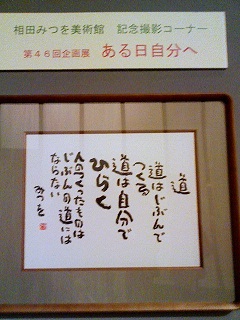 相田みつを美術館 記念撮影コーナー
第46回企画展 ある日自分へ
道
道はじぶんで
つくる
道は自分で
ひらく
人のつくったものは
じぶんの道には
ならない
みつを